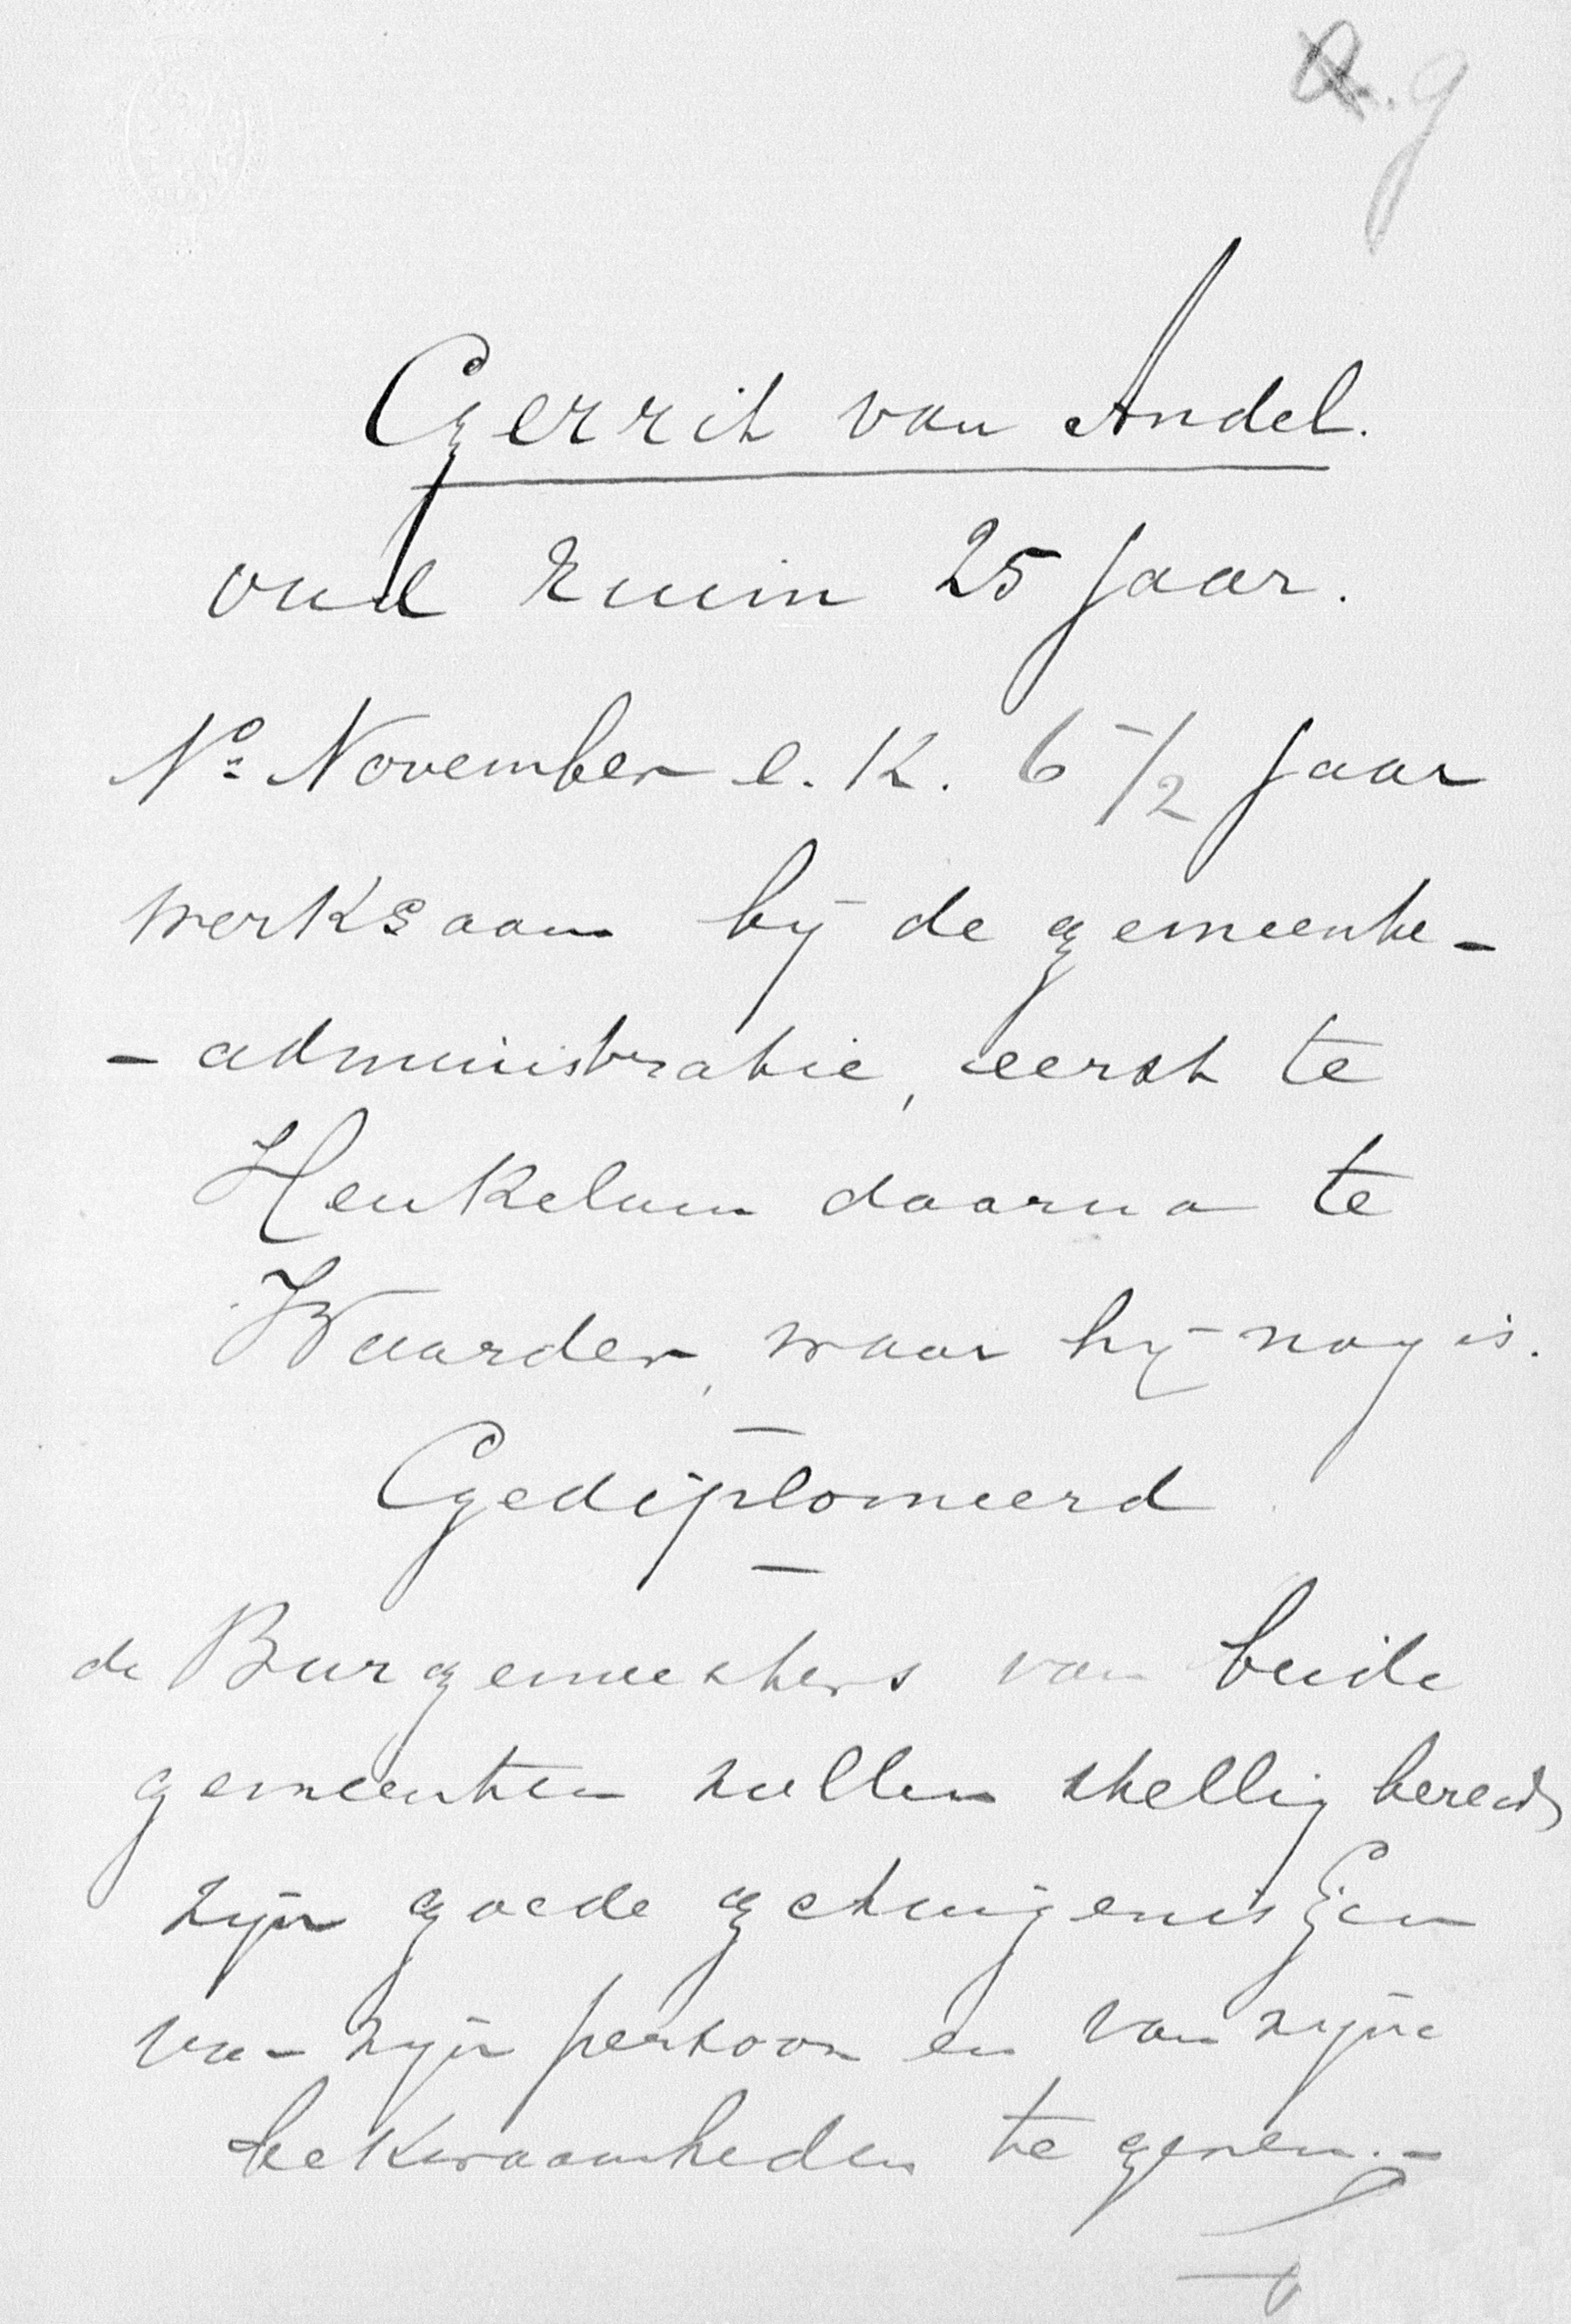 g
Gerrit van Andel.
oud ruim 25 jaar.
November e.k. 6 1/2 jaar
werkzaam bij de gemeente-
- administratie, eerst te
Heukelum daarna te
Waarder, waar hij nog is.
Gediplomeerd
de Burgemeesters van beide
gemeenten zullen stellig bereid
zijn goede getuigenissen
van zijn persoon en van zijne
bekwaamheden te geven.-